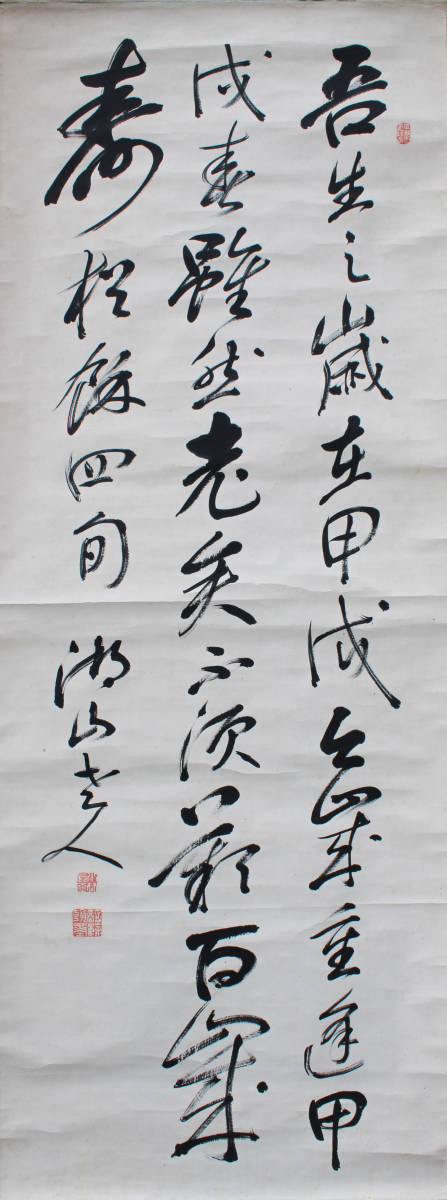 吾生之歳在甲戌今歳重逢甲
戌春雖然老矣不須歎百歳
壽猶餘四旬 湖山老人